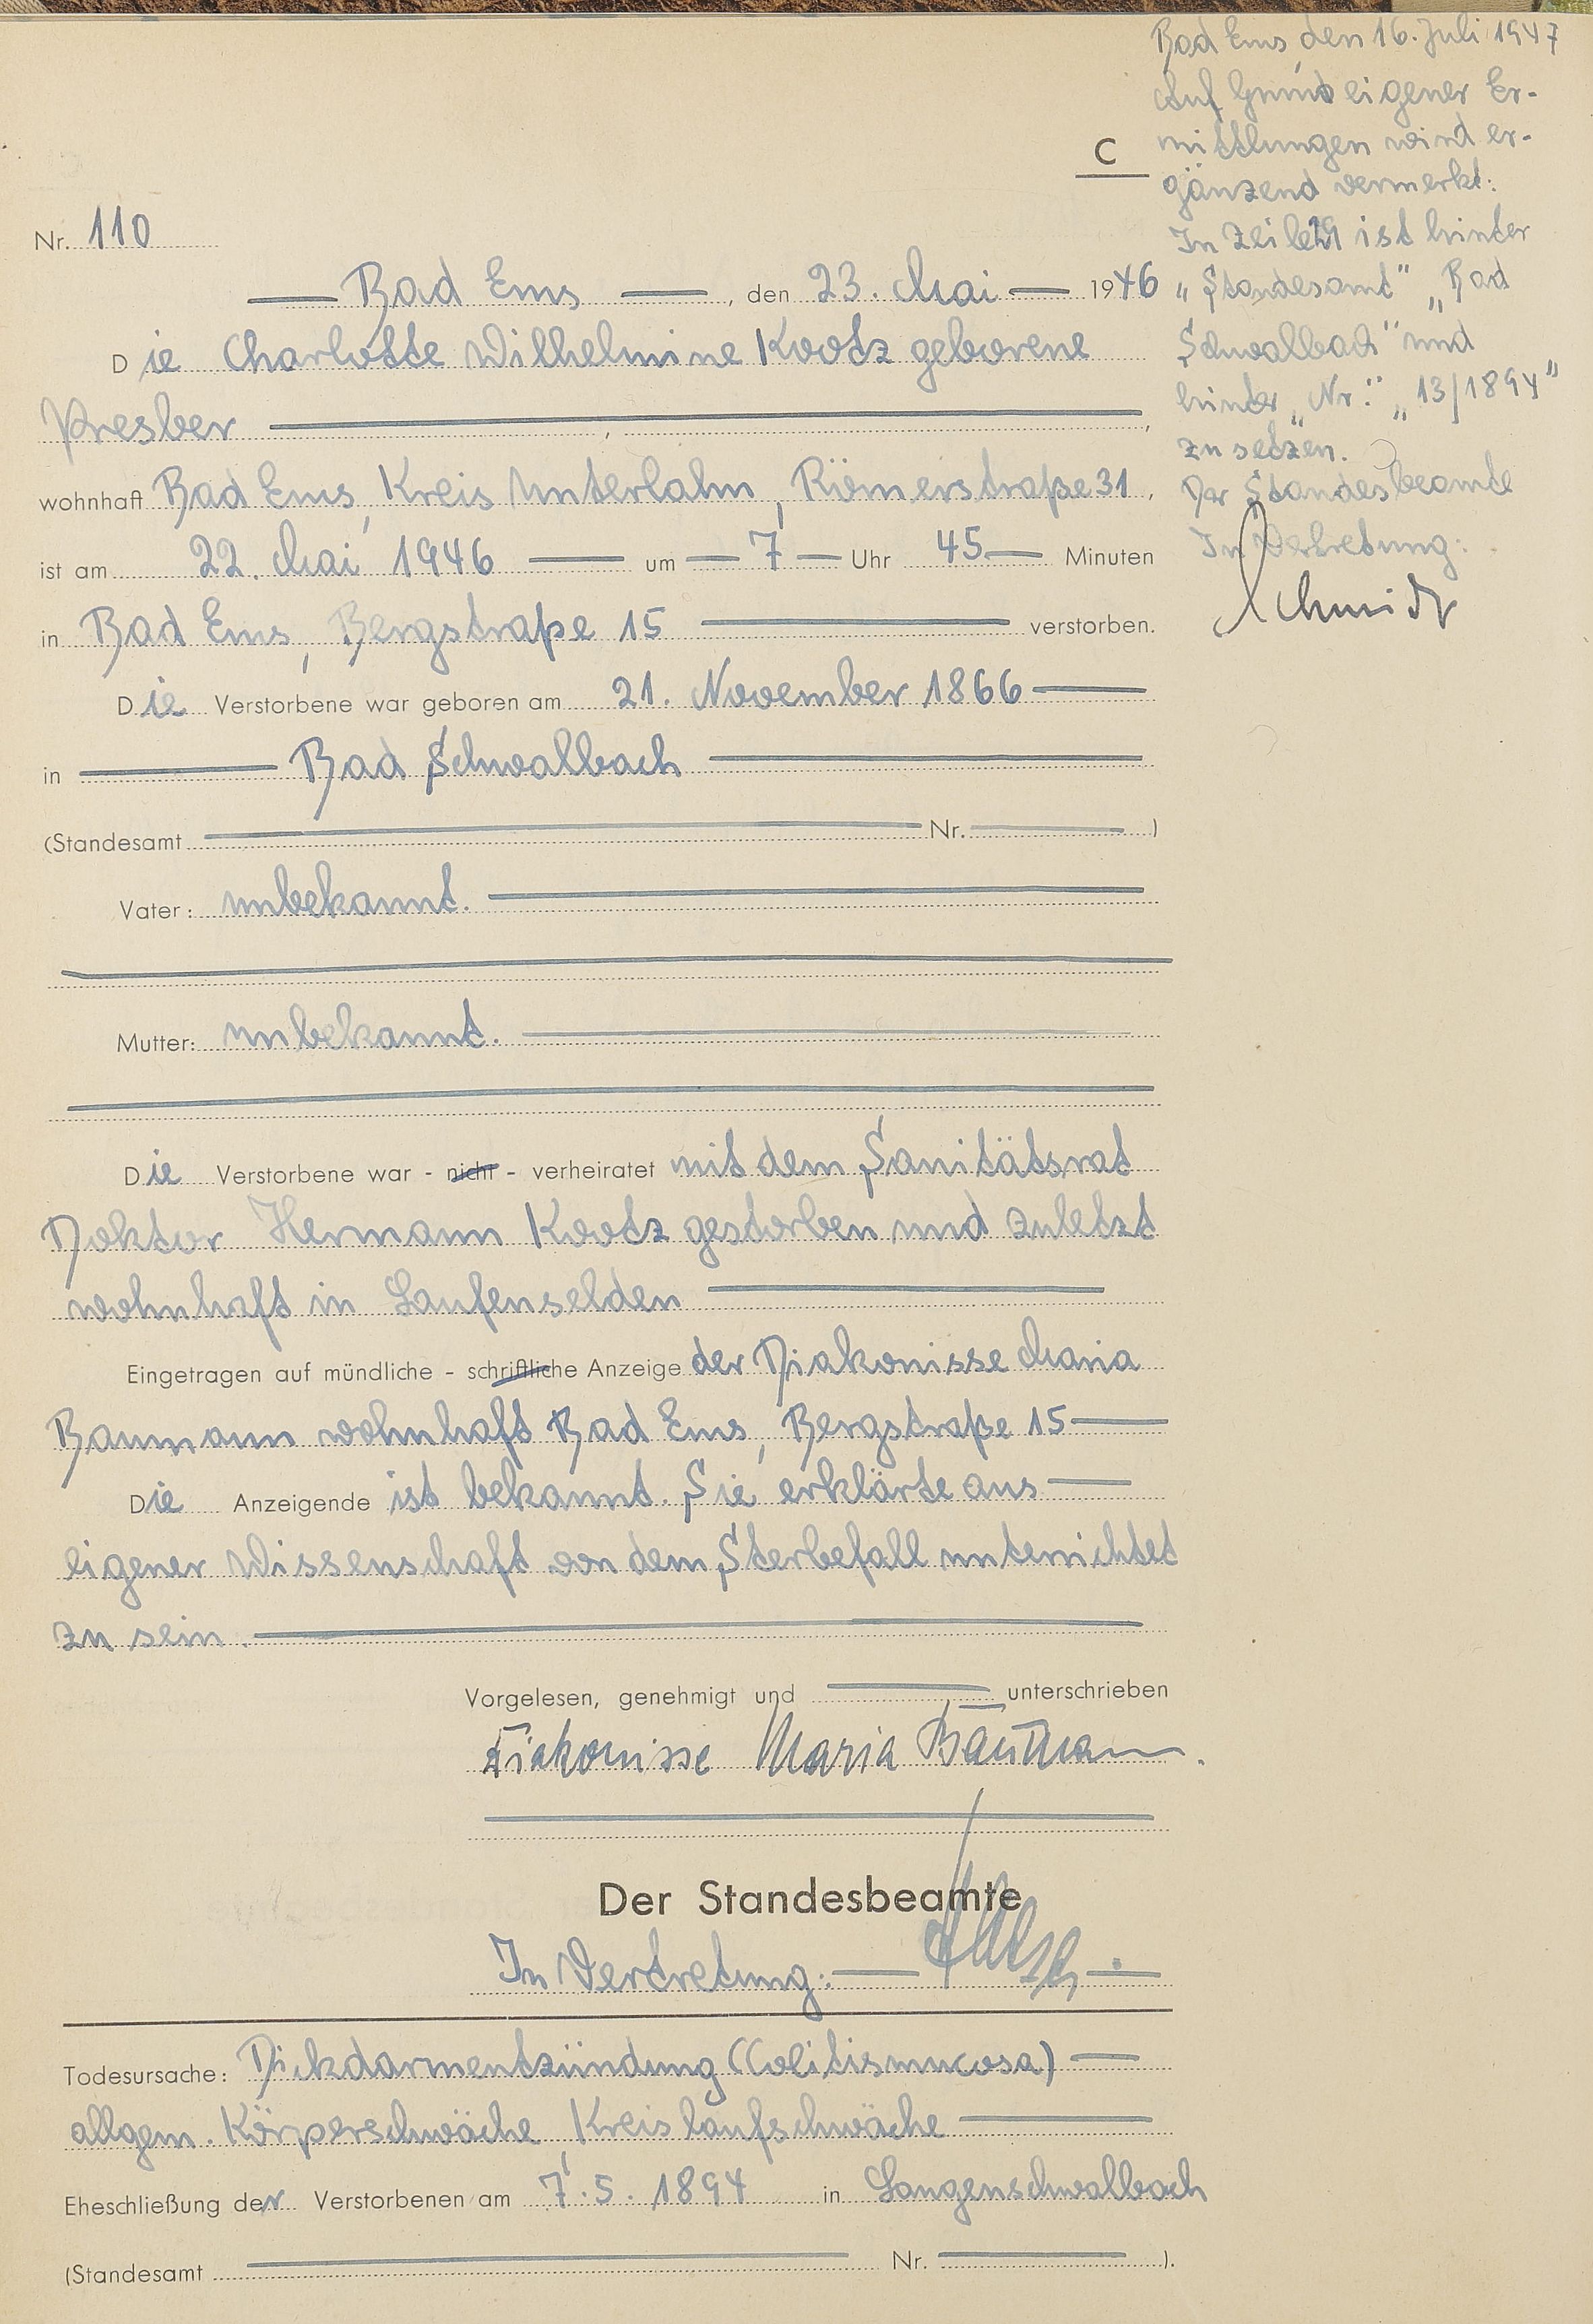 Bad Ems, den 16. Juli 1947
Auf Grund eigener Er-
mittlungen wird er-
gänzend vermerkt:
In Zeile 29 ist hinter
"Standesamt" „Bad
Schwalbach" und
hinter „Nr." „13/1894"
zu setzen.
Der Standesbeamte
In Vertretung:
Schmidt
C
Nr. 110
Bad Ems, den 23. Mai 1946
Die Charlotte Wilhelmine Kootz geborene
Presber,
wohnhaft Bad Ems, Kreis Unterlahn, Römerstraße 31,
ist am 22. Mai 1946 um 7 Uhr 45 Minuten
in Bad Ems, Bergstraße 15 verstorben.
Die Verstorbene war geboren am 21. November 1866
in Bad Schwalbach
(Standesamt Nr. )
Vater: unbekannt.
Mutter: unbekannt.
Die Verstorbene war - nicht - verheiratet mit dem Sanitätsrat
Doktor Hermann Kootz gestorben und zuletzt
wohnhaft in Laufenselden
Eingetragen auf mündliche - schriftliche Anzeige der Diakonisse Maria
Baumann wohnhaft Bad Ems, Bergstraße 15
Die Anzeigende ist bekannt. Sie erklärte aus
eigener Wissenschaft von dem Sterbefall unterrichtet
zu sein.
Vorgelesen, genehmigt und unterschrieben
Diakonisse Maria Baumann.
Der Standesbeamte
In Vertretung:
Todesursache: Dickdarmentzündung (Colitismucosa)
allgem. Körperschwäche, Kreislaufschwäche
Eheschließung der Verstorbenen am 7.5.1894 in Langenschwalbach
(Standesamt Nr. ).